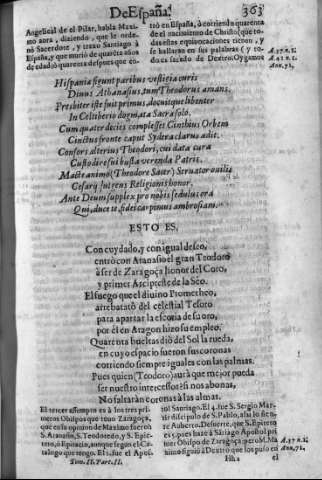 De España.
363
Angelical de el Pilar, habla Maxi-
mo aora, diziendo, que le orde-
nò Sacerdote, y traxo Santiago à
España, y que murió de quarēta años
de edad ò quarenta despues que en-
trò en España, ò corriendo quarenta
de el nacimiento de Christo (que to-
das estas equivocaciones tienen, y
se hallaran en sus palabras (y to-
das sacaló de Dextro. Oygamos
Hispania figunt paribus vestigia curis
Divus Athanasius, tum Theodorus amans.
Presbiter iste fuit primus, docuitque libenter
In Celtiberio dogmata Sacra solo.
Cum quater decies complesset Cinthius Orbem
Cinctus fronte caput Sydera clarus adit.
Consors alterius Theodori, cui data cura
Custodire sui busta verenda Patris.
Macte animo (Theodore Sacer) Servator ovilis
Cesarg Iutreus Religionis honor.
Ante Deum supplex pro nobis sedulus ora
Qui, duce te, fidei carpimus ambrosiam.
ESTO ES,
Con cuydado, y con igual deseo,
entrò con Atanasio el gran Teodoro
à ser de Zaragoça honor del Coro,
y primer Arcipreste de la Seo.
El fuego que el divino Prometheo,
arrebatatò del celestial Tesoro
para apartar la escoria de su oro,
por èl en Aragon hizo su empleo.
Quarenta bueltas diò del Sol la rueda,
en cuyo espacio fueron sus coronas
corriendo siempre iguales con las palmas.
Pues quien (Teodoro) aurà que mejor pueda
ser nuestro intercessor? si nos abonas,
No faltaràn coronas à las almas.
El tercer assumpto es à los tres pri-
meros Obispos que tuvo Zaragoça,
que en la opinion de Maximo fueron
S. Atanasio, S. Teodoredo, y S. Epic-
teto, ò Epitacio, aunque segun el Ca-
talogo que tengo. El 1. fue el Apos-
Tom. II. Part. II.
tol Santiago. El 2. fue S. Sergio Mar-
tir discipulo de S. Pablo, a su lo sien-
te Auberto. De suerte, que S. Epicteto
es 5. pues hace à Sātiago Apostol pri-
mer Obispo de Zaragoça: pero M. Ma
ximo siguiò à Dextro que los puso en
Hh 2
el